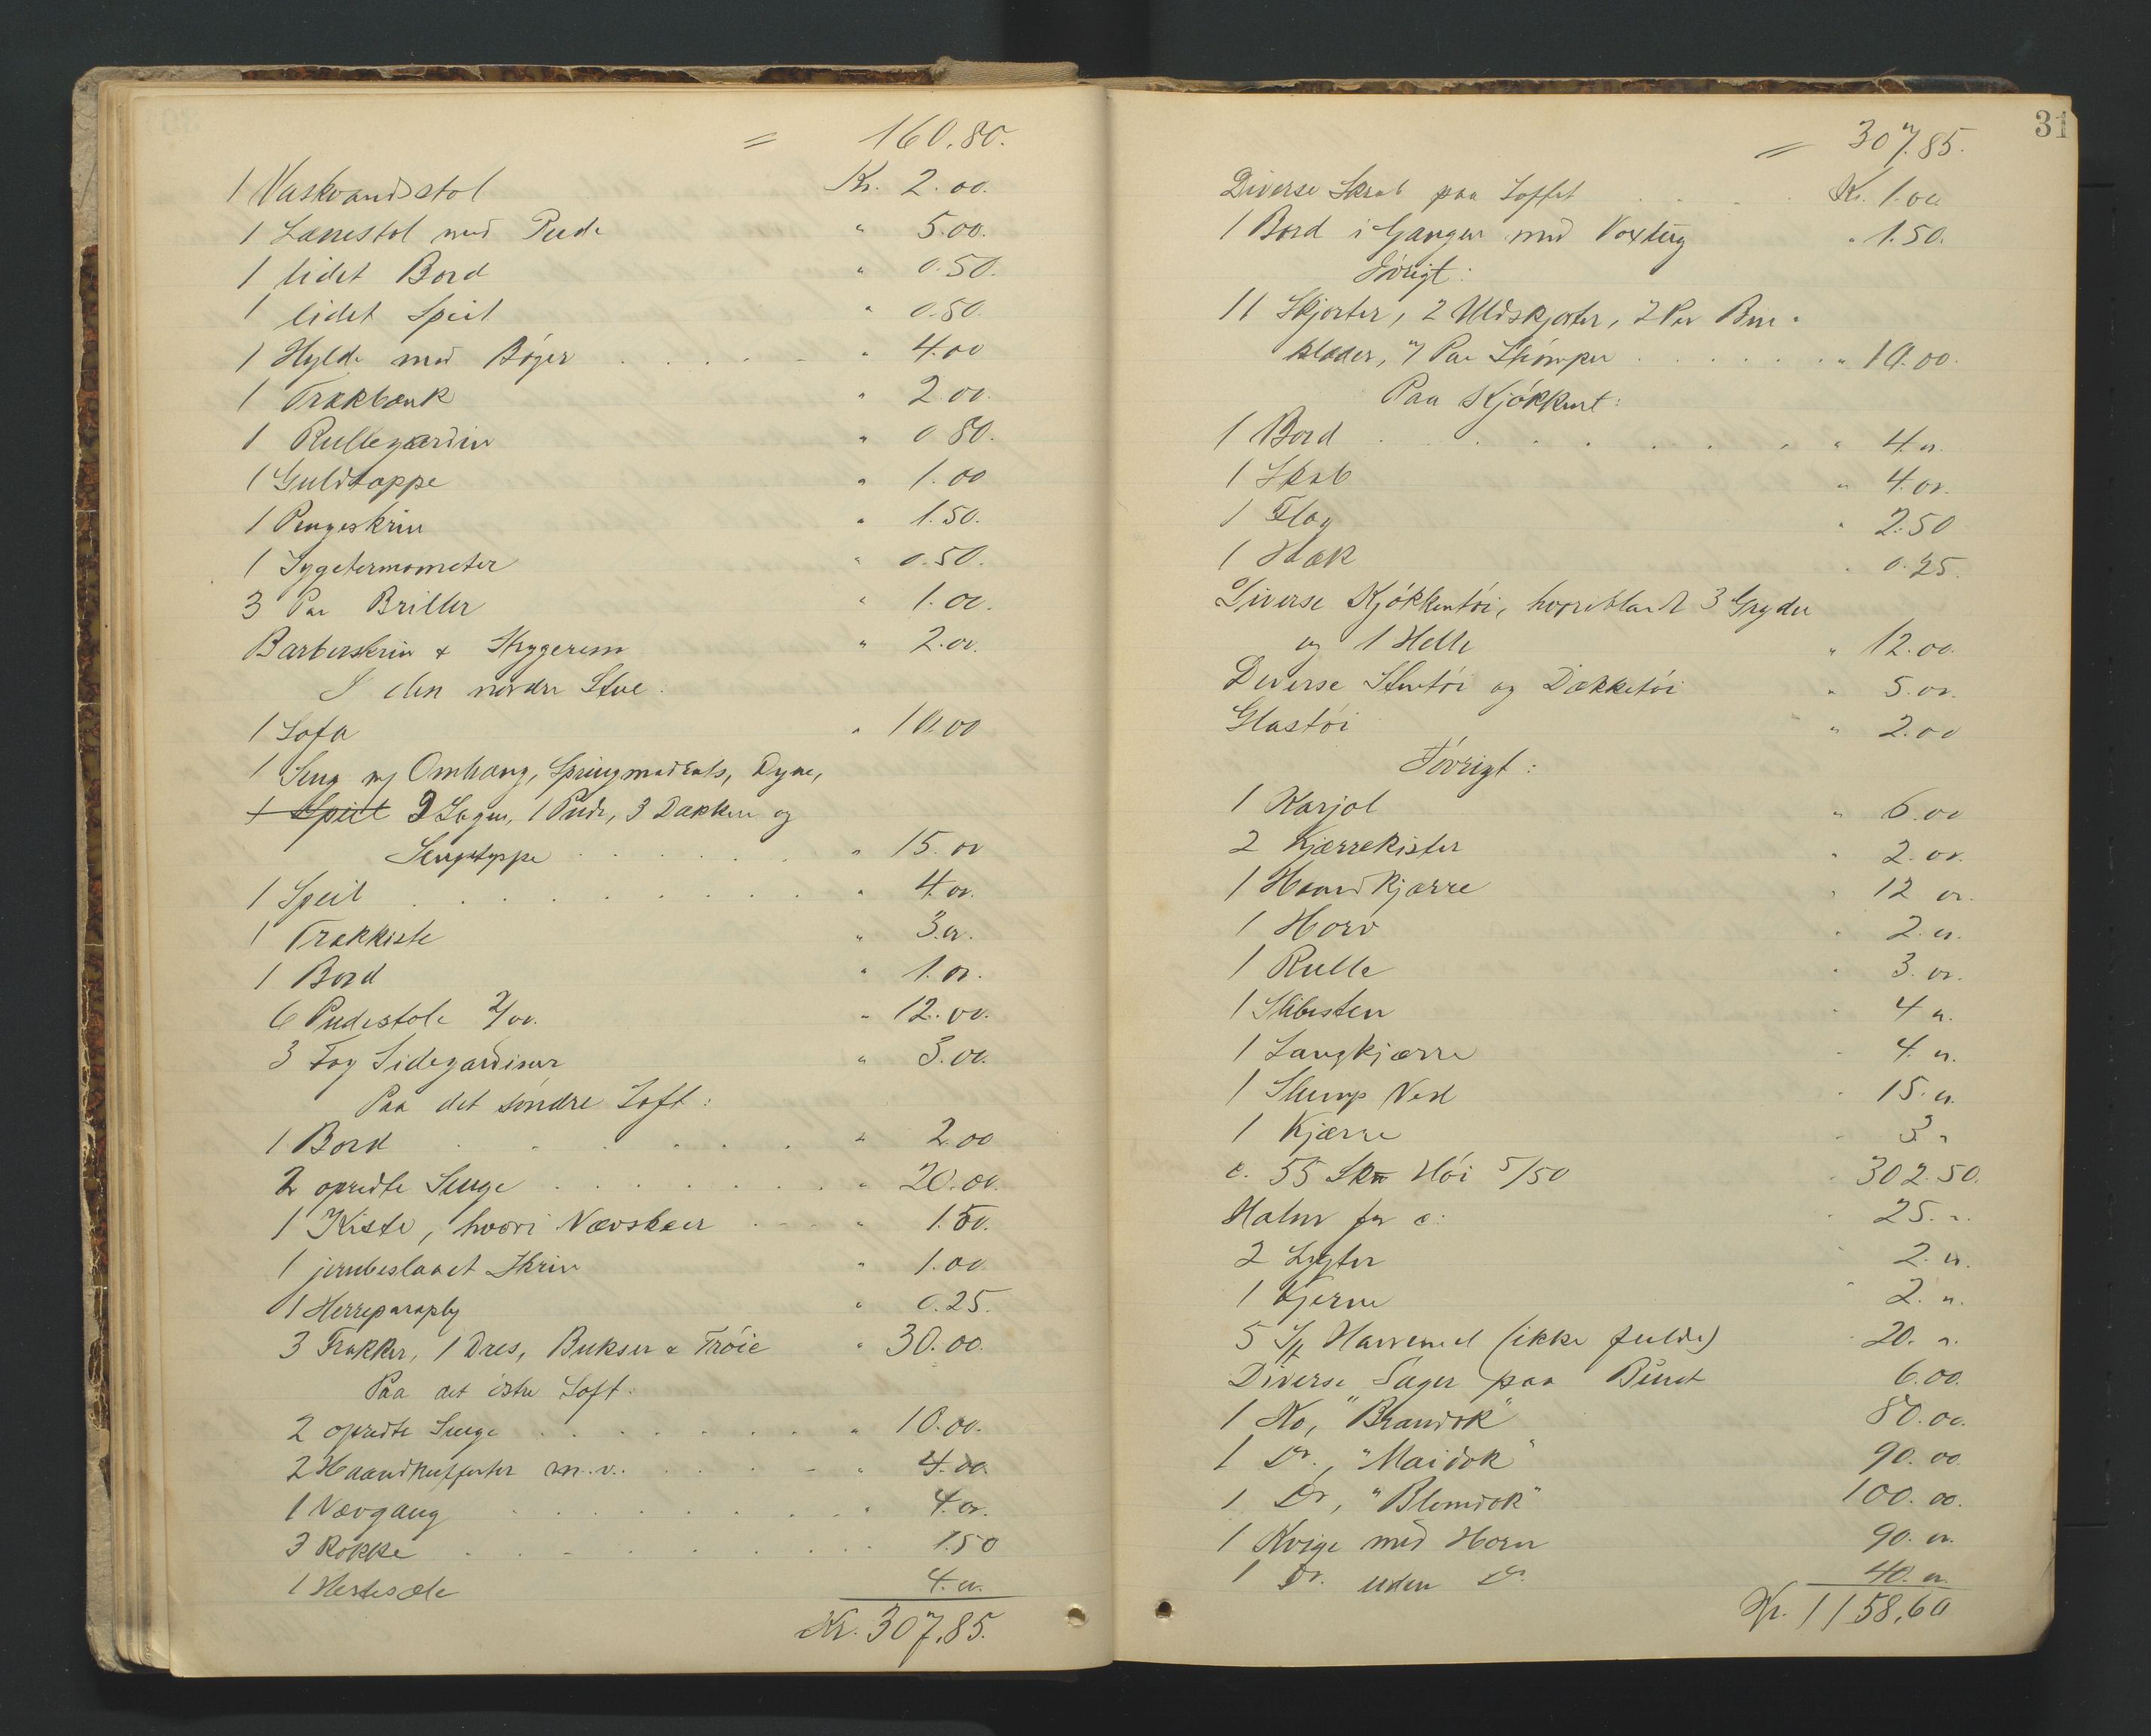 = 160.80.
1 Vaskvandsstol Kr. 2.00.
1 Lænestol med Pude " 5.00.
1 lidet Bord " 0.50.
1 lidet Speil " 0.50.
1 Hylde med Bøger . . . . . " 4.00
1 Trækbænk " 2.00.
1 Rullegardin " 0 80.
1 Guldtoppe " 1.00
1 Pengeskrin " 1.50.
1 Sygetermometer " 0.50.
3 Par Briller " 1.00.
Barberskrin & Strygerem " 2.00.
I den nordre Stue.
1 Sofa " 10.00
1 Seng m/ Omhæng, Springmadrats, Dyne,
1 Speil 2 Lagen, 1 Pude, 3 Dækken og
Sengeteppe . . . . . . " 15.00
1 Speil . . . . . . . . . . " 4.00.
1 Trækkiste " 3.00.
1 Bord " 1.00.
6 Pudestole 2/00. " 12.00.
3 Fag Sidegardiner " 3.00.
Paa det søndre Loft:
1 Bord . . . . . . . " 2.00
2 opredte Senge . . . . . . . . " 20.00.
1 Kiste, hvori Vævskeer . . . . " 1.50.
1 jernbeslaaet Skrin " 1.00
1 Herreparaply " 0.25.
3 Frakker, 1 Dres, Bukser & Trøie " 30.00.
Paa det østre Loft:
2 opredte Senge . . . . . . . . " 10.00.
2 Haandkufferter m.v. . . . . . " 4.00.
1 Vævgang . . . . . . . . . 4.00.
3 Rokke . . . . . . . . . . 1.50
1 Hestesæle 4.00.
Kr. 307.85.
31
= 307.85.
Diverse Skrab paa Loftet . . . . . Kr. 1.00
1 Bord i Gangen med Voxtug " 1.50.
Iøvrigt:
11 Skjorter, 2 Uldskjorter, 2 Par Ben-
klæder, 7 Par Strømper . . . . . . " 10.00.
Paa Kjøkkenet:
1 Bord . . . . . . . . . " 4.00.
1 Skab " 4.00.
1 Flag " 2.50
1 Hæk " 0.25.
Diverse Kjøkkentøi, hvoriblandt 3 Gryder
og 1 Helle " 12.00.
Diverse Stentøi og Dækketøi " 5.00.
Glastøi " 2.00
Iøvrigt:
1 Karjol " 6.00
2 Kjærrekister " 2.00.
1 Haandkjærre " 12 00.
1 Horv " 2.00.
1 Rulle " 3.00.
1 Slibesten " 4 00.
1 Langkjærre " 4.00.
1 Slump Ved " 15.00.
1 Kjærre " 3. "
c. 55 Sk# Høi 5/50 " 302.50.
Halm for c: " 25. "
2 Lygter " 2.00.
1 Kjerne " 2. "
5 S/k Havremel (ikke fulde) " 20. "
Diverse Sager paa Buret 6.00.
1 Ko, "Brandrok" 80.00.
1 Do., "Mairok" 90.00.
1 Do, "Blomrok" 100.00.
1 Kvige med Horn 90.00.
1 Do. uden Do. 40.00.
Kr. 1158,60